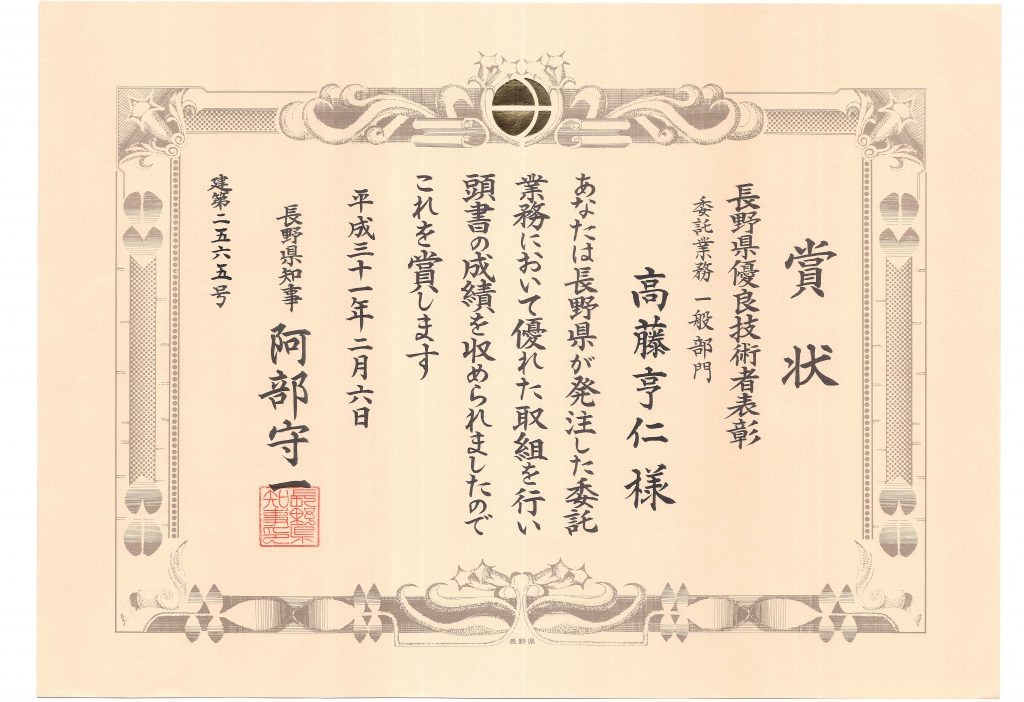 賞状
長野県優良技術者表彰
委託業務 一般部門
高藤亨仁 様
あなたは長野県が発注した委託
業務において優れた取組を行い
頭書の成績を収められましたので
これを賞します
平成三十一年二月六日
長野県知事 阿部守一
長野県
知事印
建第二五六五号
長野県